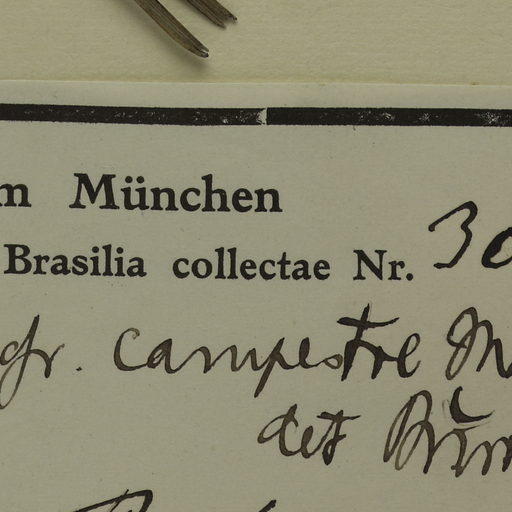 m München
Brasilia collectae Nr. 30
gr. campestre M
det Brŭm